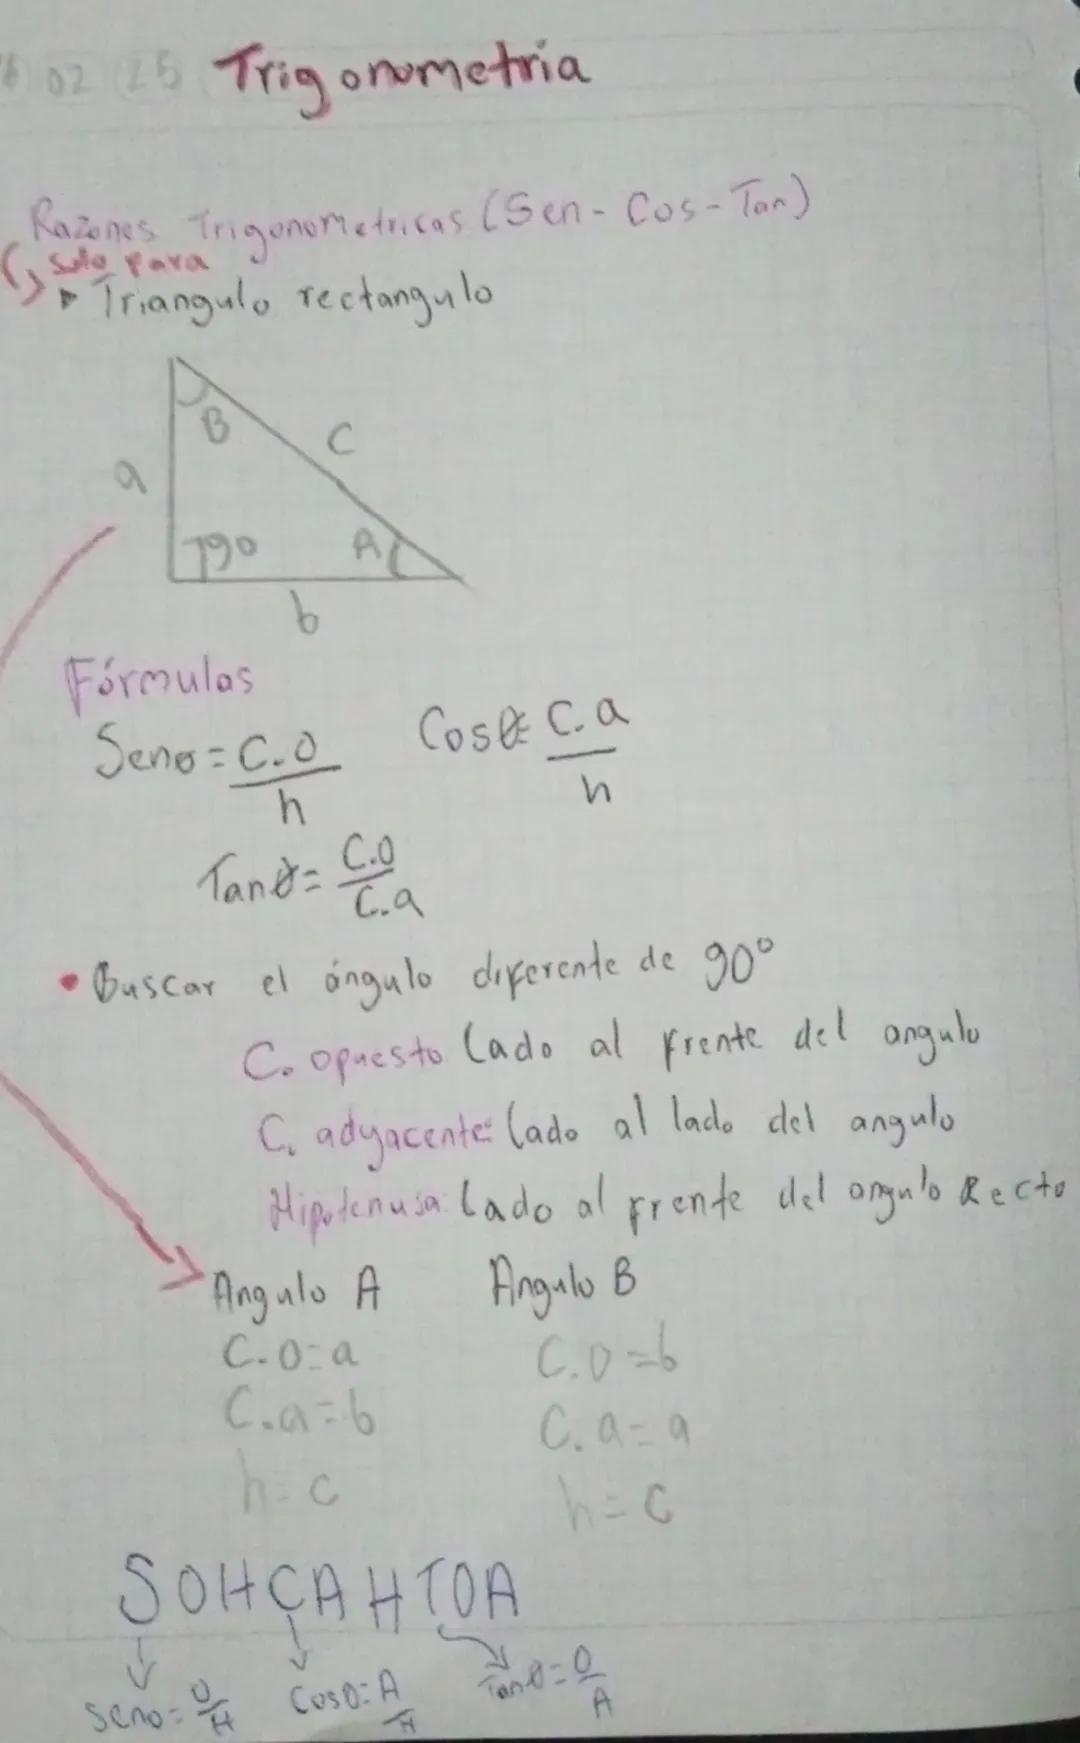 02 25 Trigonometria
Razones Trigonometricas (Sen - Cos - Tan)
solo para
Triangulo rectangulo
B
C
a
90
A
b
Fórmulas
Senθ = C.O
h
Cosθ = C.a
h
Tanθ = C.O
C.a
• Buscar el ángulo diferente de 90°
C. opuesto lado al frente del angulo
C. adyacente: lado al lado del angulo
Hipotenusa: lado al frente del angulo Recto
Angulo A
C.O = a
C.a = b
h = c
Angulo B
C.O = b
C.a = a
h = c
SOHCAHTOA
senθ = O/H
Cosθ = A/H
Tanθ = O/A